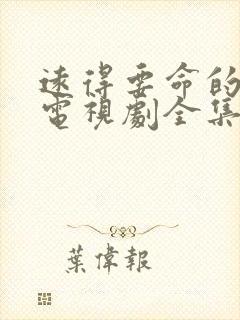 遠得要命的
電視劇全集
葉偉報